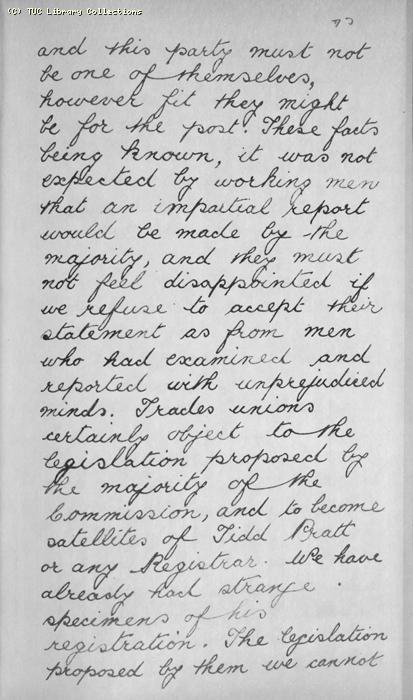 (C) TUC Library Collections
and this party must not
be one of themselves,
however fit they might
be for the post. These facts
being known, it was not
expected by working men
that an impartial report
would be made by the
majority, and they must
not feel disappointed if
we refuse to accept their
statement as from men
who had examined and
reported with unprejudiced
minds. Trades unions
certainly object to the
legislation proposed by
the majority of the
Commission, and to become
satellites of Tidd Pratt
or any Registrar. We have
already had strange
specimens of his
registration. The legislation
proposed by them we cannot